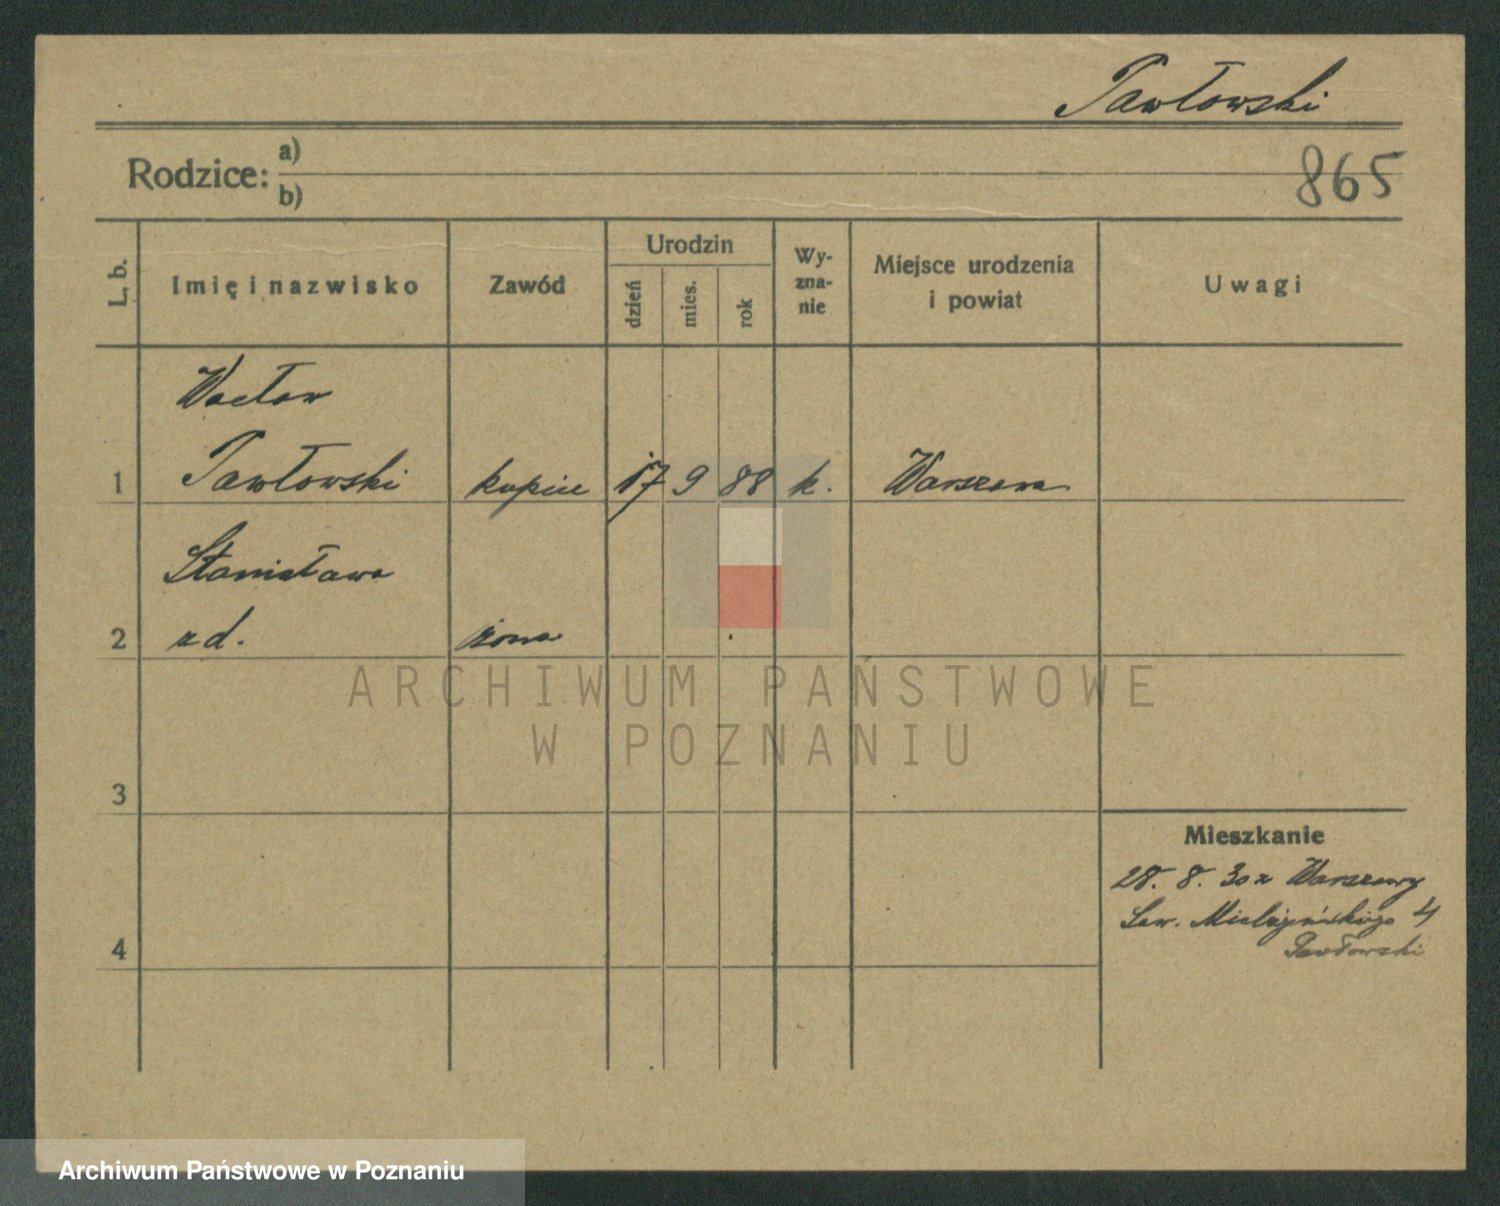 Pawłowski
Rodzice: a)
b)
865
L. b.
Imię i nazwisko
Zawód
Urodzin
dzień
mies.
rok
Wy-
zna-
nie
Miejsce urodzenia
i powiat
Uwagi
Wacław
1 Pawłowski kupiec 17 9 88 k. Warszawa
Stanisława
2 zd. żona
3
4
Mieszkanie
28. 8. 30 z Warszawy
Sew. Mielżyńskiego 4
Pawłowski
ARCHIWUM PAŃSTWOWE
W POZNANIU
Archiwum Państwowe w Poznaniu